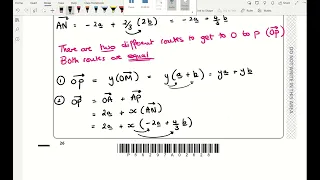 AN = -2a + 2/3 (2b) = -2a + 4/3 b
There are two different routes to get to O to P (OP)
Both routes are equal
① OP = y(OM) = y(a + b) = ya + yb
② OP = OA + AP
= 2a + x(AN)
= 2a + x(-2a + 4/3 b)
DO NOT WRITE IN THIS AREA
26